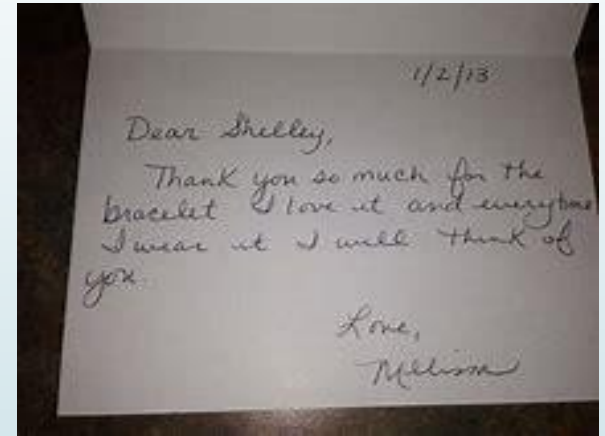 1/2/13
Dear Shelley,
Thank you so much for the
bracelet I love it and everytime
I wear it I will think of
you.
Love,
Melissa